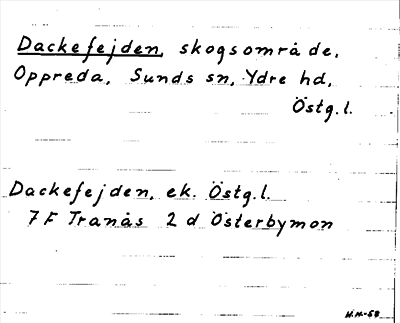 Dackefejden, skogsområde,
Oppreda, Sunds sn, Ydre hd,
Östg.l.
Dackefejden, ek. Östg.l.
7 F Tranås 2 d Österbymon
H.H-58